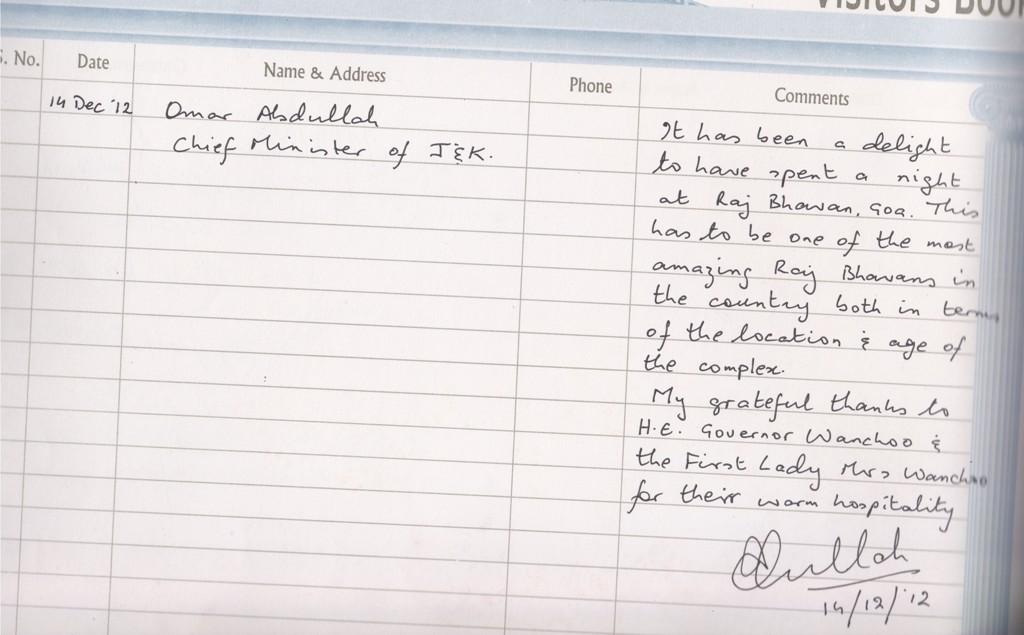 Visitors Book
S. No. Date Name & Address Phone Comments
14 Dec '12 Omar Abdullah
Chief Minister of J&K.
It has been a delight
to have spent a night
at Raj Bhavan, Goa. This
has to be one of the most
amazing Raj Bhavans in
the country both in terms
of the location & age of
the complex.
My grateful thanks to
H.E. Governor Wanchoo &
the First Lady Mrs Wanchoo
for their warm hospitality
Abdullah
14/12/'12